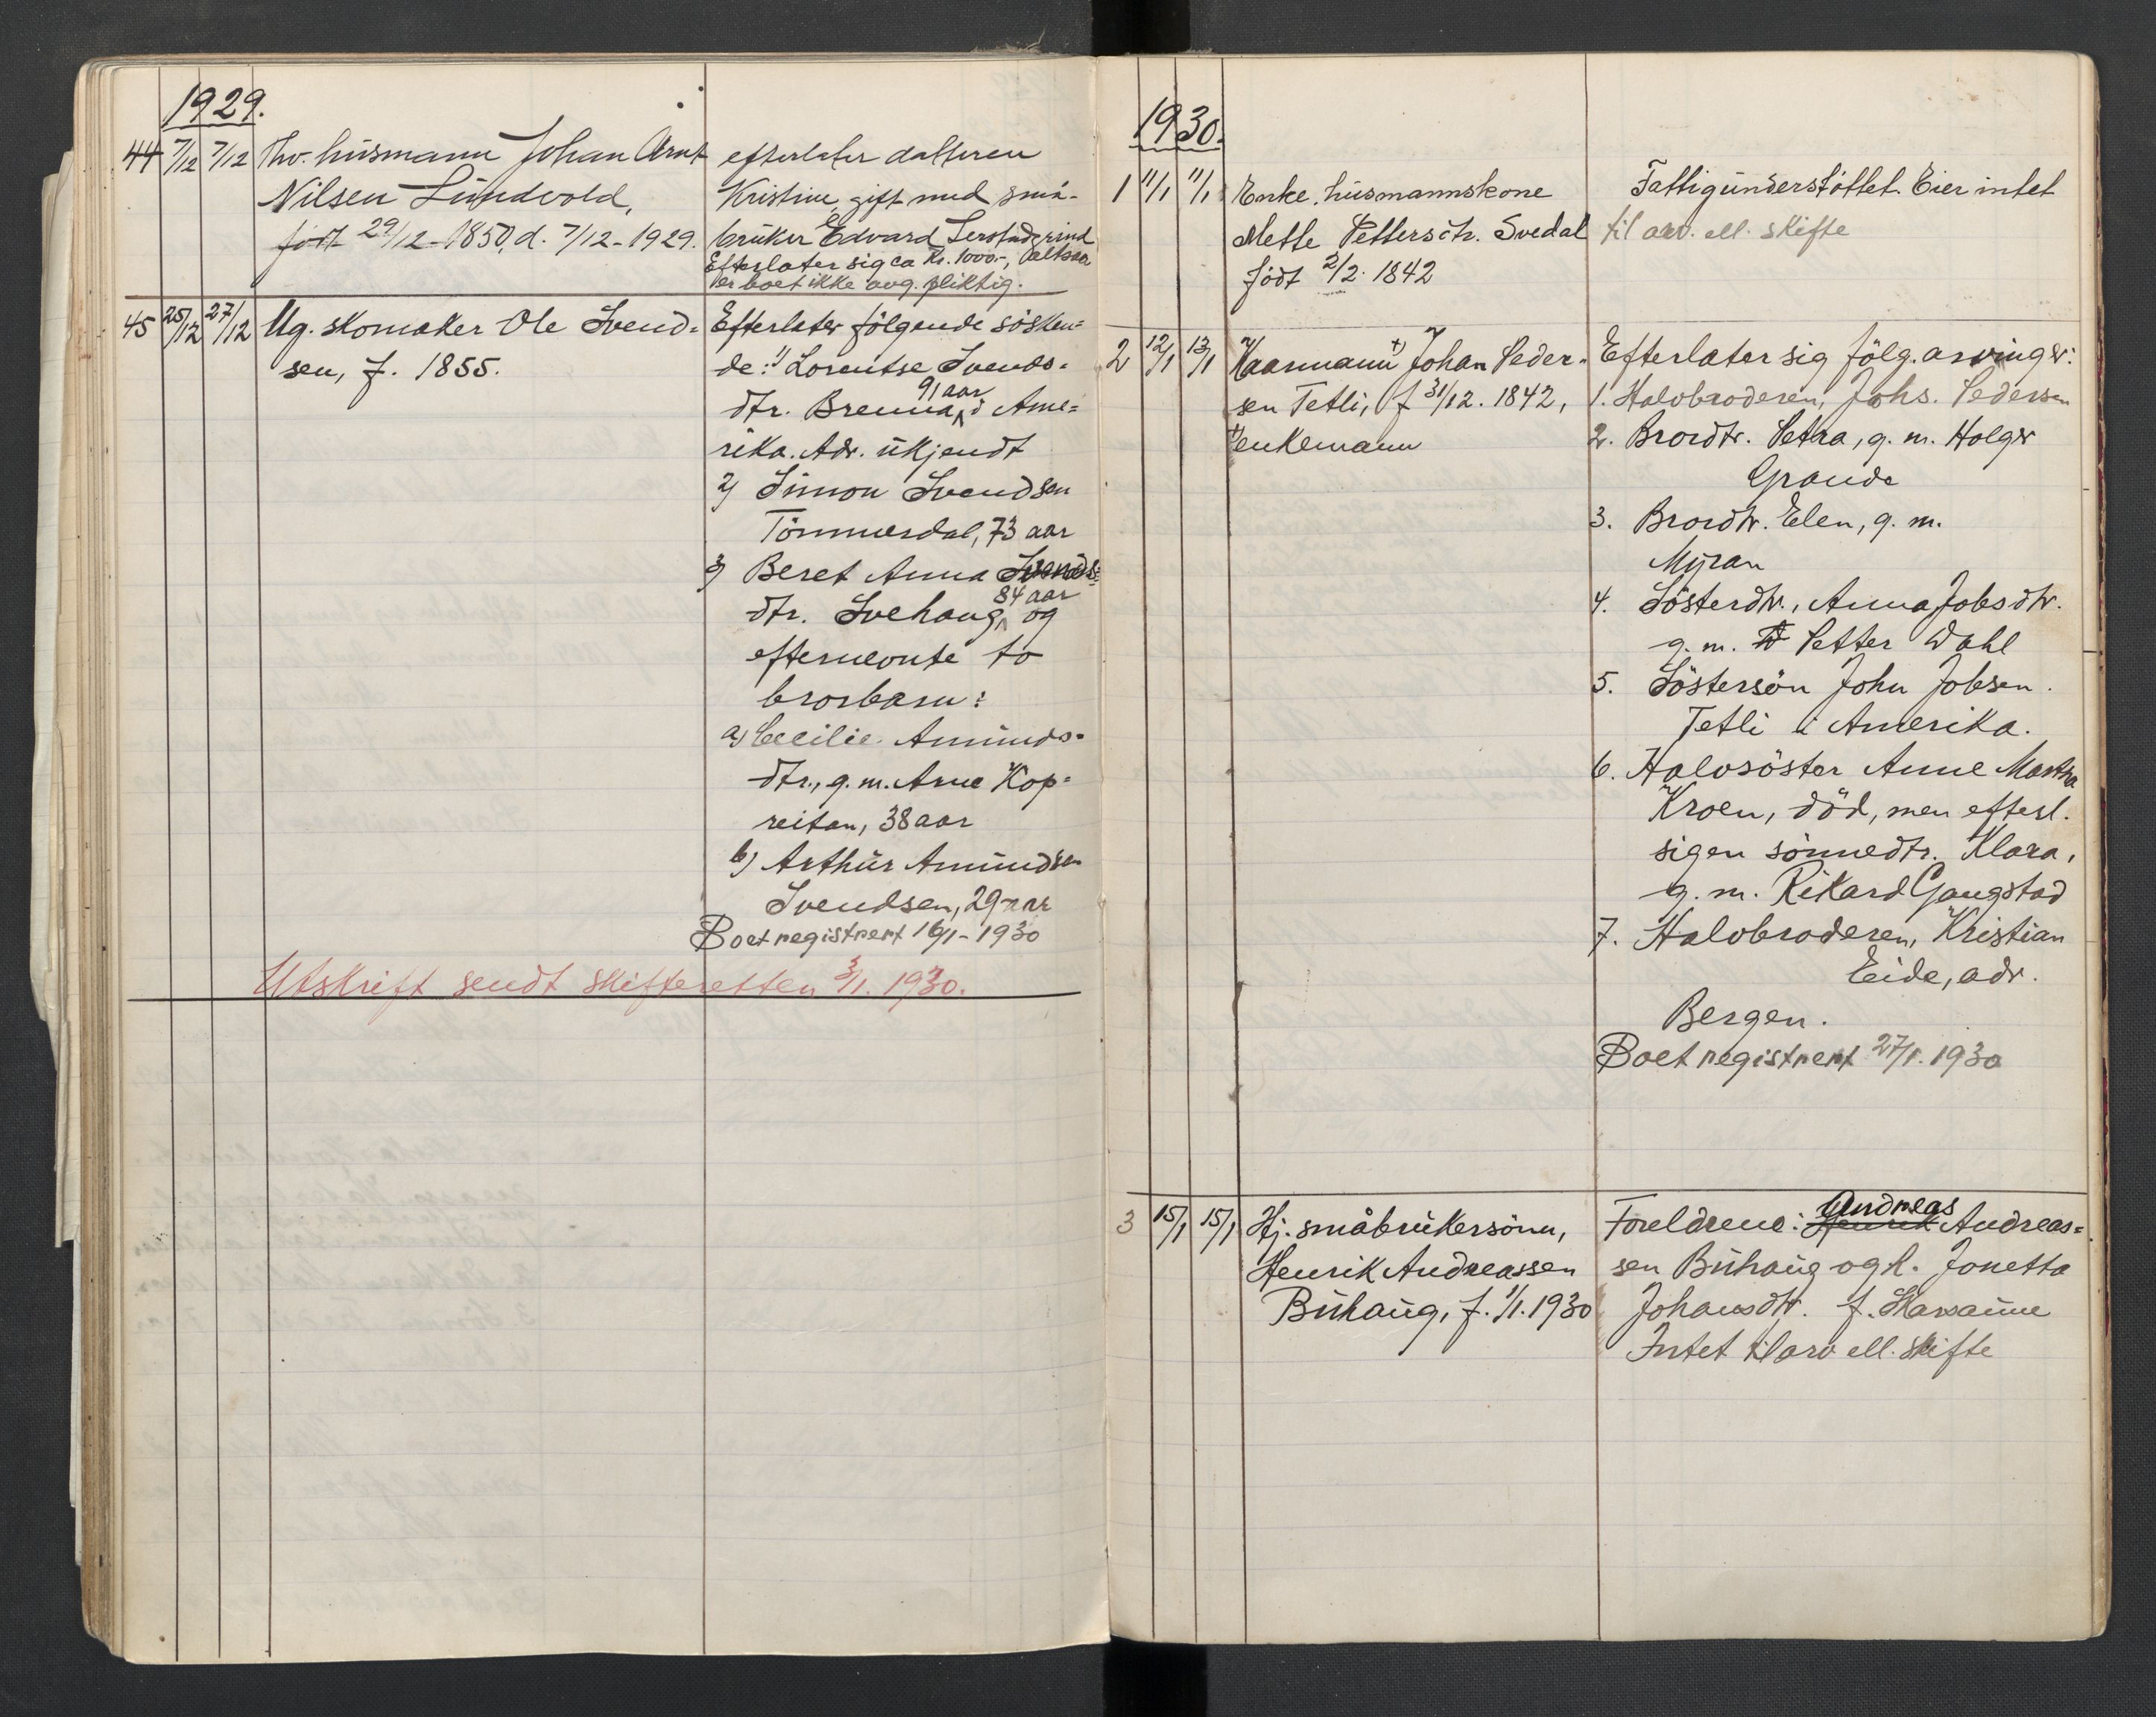 1929.
44 7/12 7/12 Thv. husmann Johan Arnt
Nilsen Lundvold,
født 29/12-1850, d. 7/12-1929.
efterlater datteren
Kristine, gift med små-
bruker Edvard Lerstadgrind
Efterlater sig ca Kr. 1000-, altsaa
er boet ikke avg. pliktig.
45 25/12 27/12 Ug. skomaker Ole Svend-
sen, f. 1855.
Efterlater følgende søsken-
de: 1) Lorentse Svends-
dtr. Brenna, 91 aar i Ame-
rika. Adr. ukjendt
2) Simon Svendsen
Tømmerdal, 73 aar
3) Beret Anna Svends-
dtr. Svehaug, 84 aar og
efternevnte to
brorbarn:
a) Cecilie Amunds-
dtr., g.m. Arne Kop-
reitan, 38 aar
b) Arthur Amundsen
Svendsen, 29 aar
Boet registrert 16/1-1930
Utskrift sendt skifteretten 3/1. 1930.
1930.
1 11/1 11/1 Enke. husmannskone
Mette Pettersdtr. Svedal
født 2/2. 1842
Fattigunderstøttet. Eier intet
til arv. ell. skifte
2 12/1 13/1 Kaarmann +) Johan Peder-
sen Tetli, f 31/12. 1842,
+) enkemann
Efterlater sig følg. arvinger:
1. Halvbroderen, Johs. Pedersen
2. Brordtr. Petra, g. m. Holger
Grande
3. Brordtr. Elen, g. m.
Myran
4. Søsterdtr., Anna Jobsdtr.
g. m. Petter Dahl
5. Søstersøn John Jobsen.
Tetli i Amerika.
6. Halvsøster Anne Martha
Kroen, død, men efterl.
sig en sønnedtr. Klara,
g. m. Rikard Gangstad
7. Halvbroderen, Kristian
Eide, adr.
Bergen.
Boet registrert 27/1. 1930
3 15/1 15/1 Hj. småbrukersønn,
Henrik Andreassen
Buhaug, f. 1/1. 1930
Foreldrene: Henrik Andreas Andreas-
sen Buhaug og h. Jonetta
Johansdtr. f.
Intet til arv ell. skifte